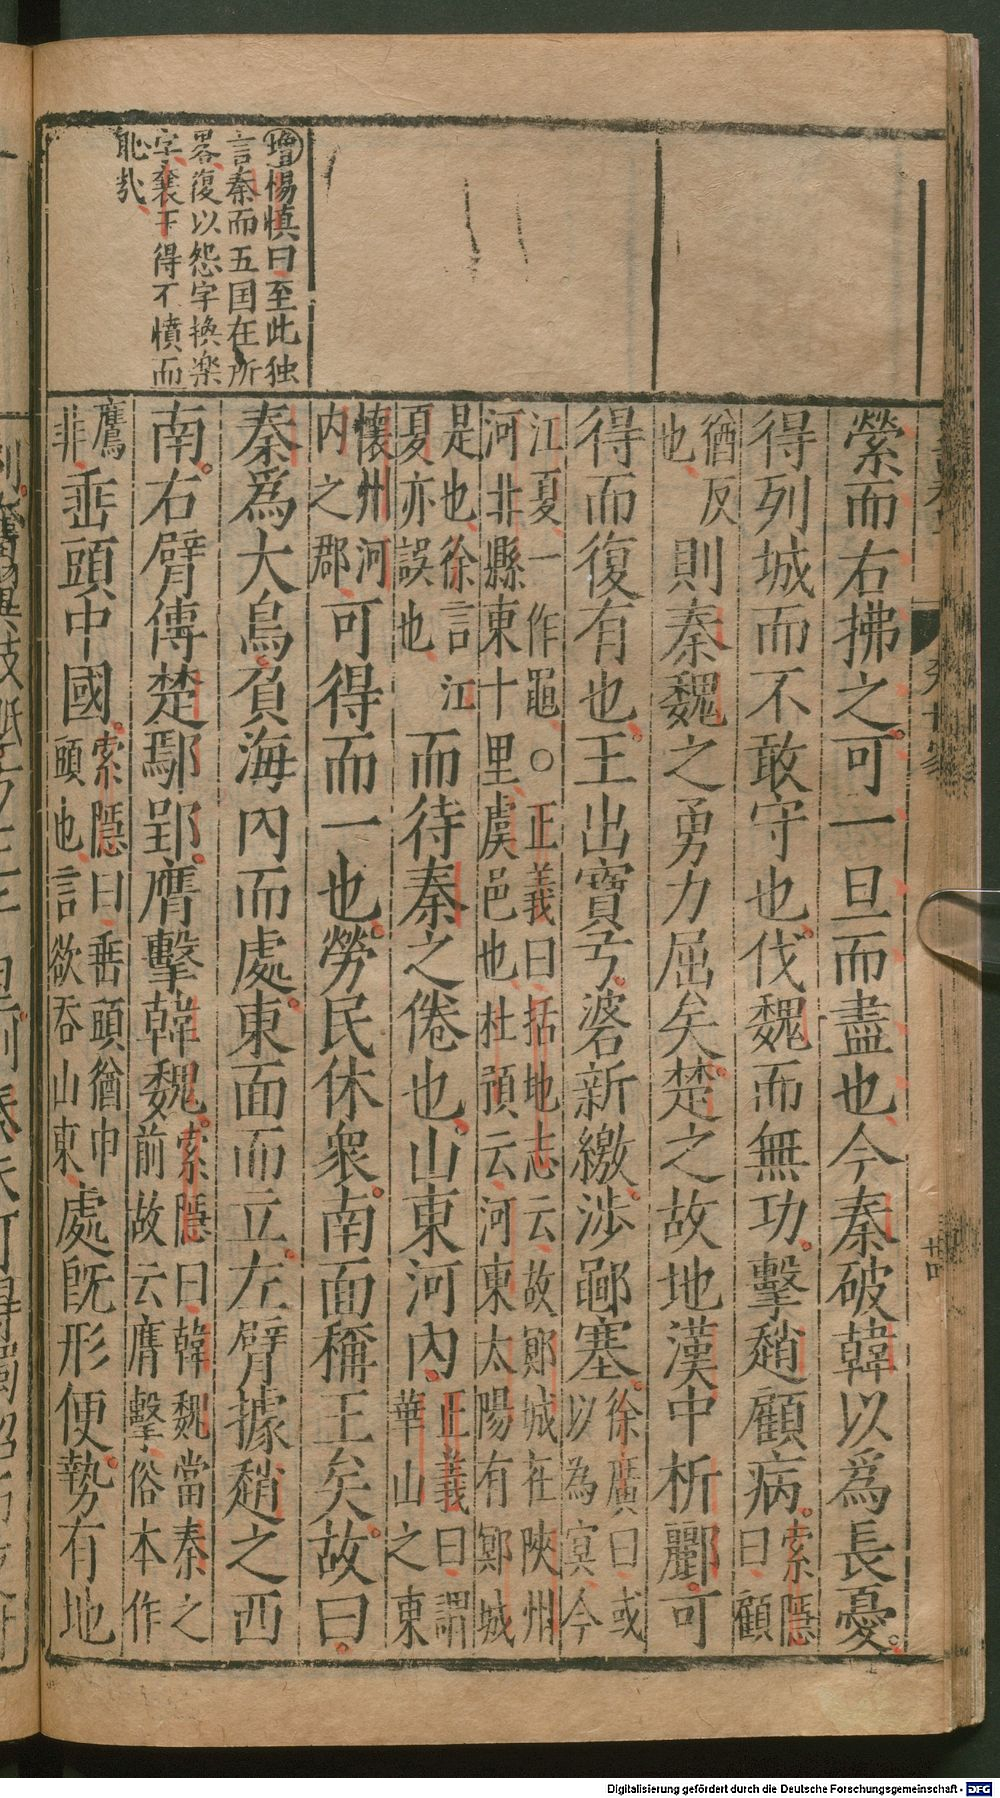 增楊慎曰至此独
言秦而五国在所
畧復以怨字換楽
字襄王得不憤而
恥㢤
縈而右拂之可一旦而盡也今秦破韓以爲長憂
得列城而不敢守也伐魏而無功擊趙顧病索隱曰顧
猶反也則秦魏之勇力屈矣楚之故地漢中析酈可
得而復有也王出寶弓碆新繳涉鄳塞徐廣曰或以為㝠今
江夏一作黽○正義曰括地志云故鄍城在陜州
河北縣東十里虞邑也杜預云河東太陽有鄍城
是也徐言江夏亦誤也而待秦之倦也山東河內正義曰謂華山之東
懷州河內之郡可得而一也勞民休衆南面稱王矣故曰
秦爲大鳥負海內而處東面而立左臂據趙之西
南右臂傅楚鄢郢膺擊韓魏索隱曰韓魏當秦之前故云膺擊俗本作
鷹非垂頭中國索隱曰垂頭猶申頤也言欲吞山東處旣形便勢有地
卄四
Digitalisierung gefördert durch die Deutsche Forschungsgemeinschaft - DFG